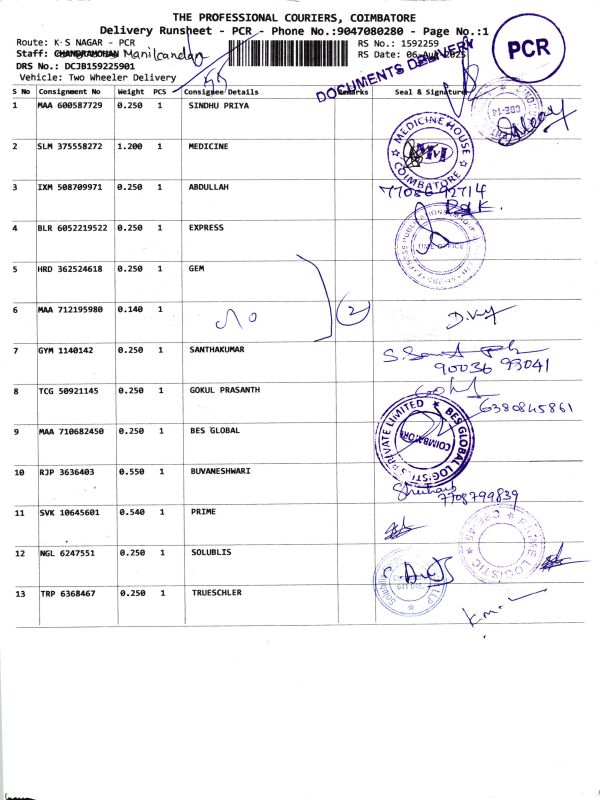 THE PROFESSIONAL COURIERS, COIMBATORE
Delivery Runsheet - PCR - Phone No.:9047080280 - Page No.:1
Route: K S NAGAR - PCR
RS No.: 1592259
Staff: CHANDRAMOHAN Manikandan
RS Date: 06-Aug-2025
DRS No.: DCJB159225901
Vehicle: Two Wheeler Delivery
DOCUMENTS DELIVERY
PCR
S No Consignment No Weight PCS Consignee Details Remarks Seal & Signature
1 MAA 600587729 0.250 1 SINDHU PRIYA
CBE-14
2 SLM 375558272 1.200 1 MEDICINE
MEDICINE HOUSE COIMBATORE
3 IXM 508709971 0.250 1 ABDULLAH
77086 92714
4 BLR 6052219522 0.250 1 EXPRESS
TIME OFFICE
5 HRD 362524618 0.250 1 GEM
6 MAA 712195980 0.140 1
No 2
7 GYM 1140142 0.250 1 SANTHAKUMAR
90036 93041
8 TCG 50921145 0.250 1 GOKUL PRASANTH
6380845861
9 MAA 710682450 0.250 1 BES GLOBAL
BES GLOBAL LOGISTICS PRIVATE LIMITED COIMBATORE
10 RJP 3636403 0.550 1 BUVANESHWARI
7708799839
11 SVK 10645601 0.540 1 PRIME
PRIME LOGISTIC
12 NGL 6247551 0.250 1 SOLUBLIS
13 TRP 6368467 0.250 1 TRUESCHLER